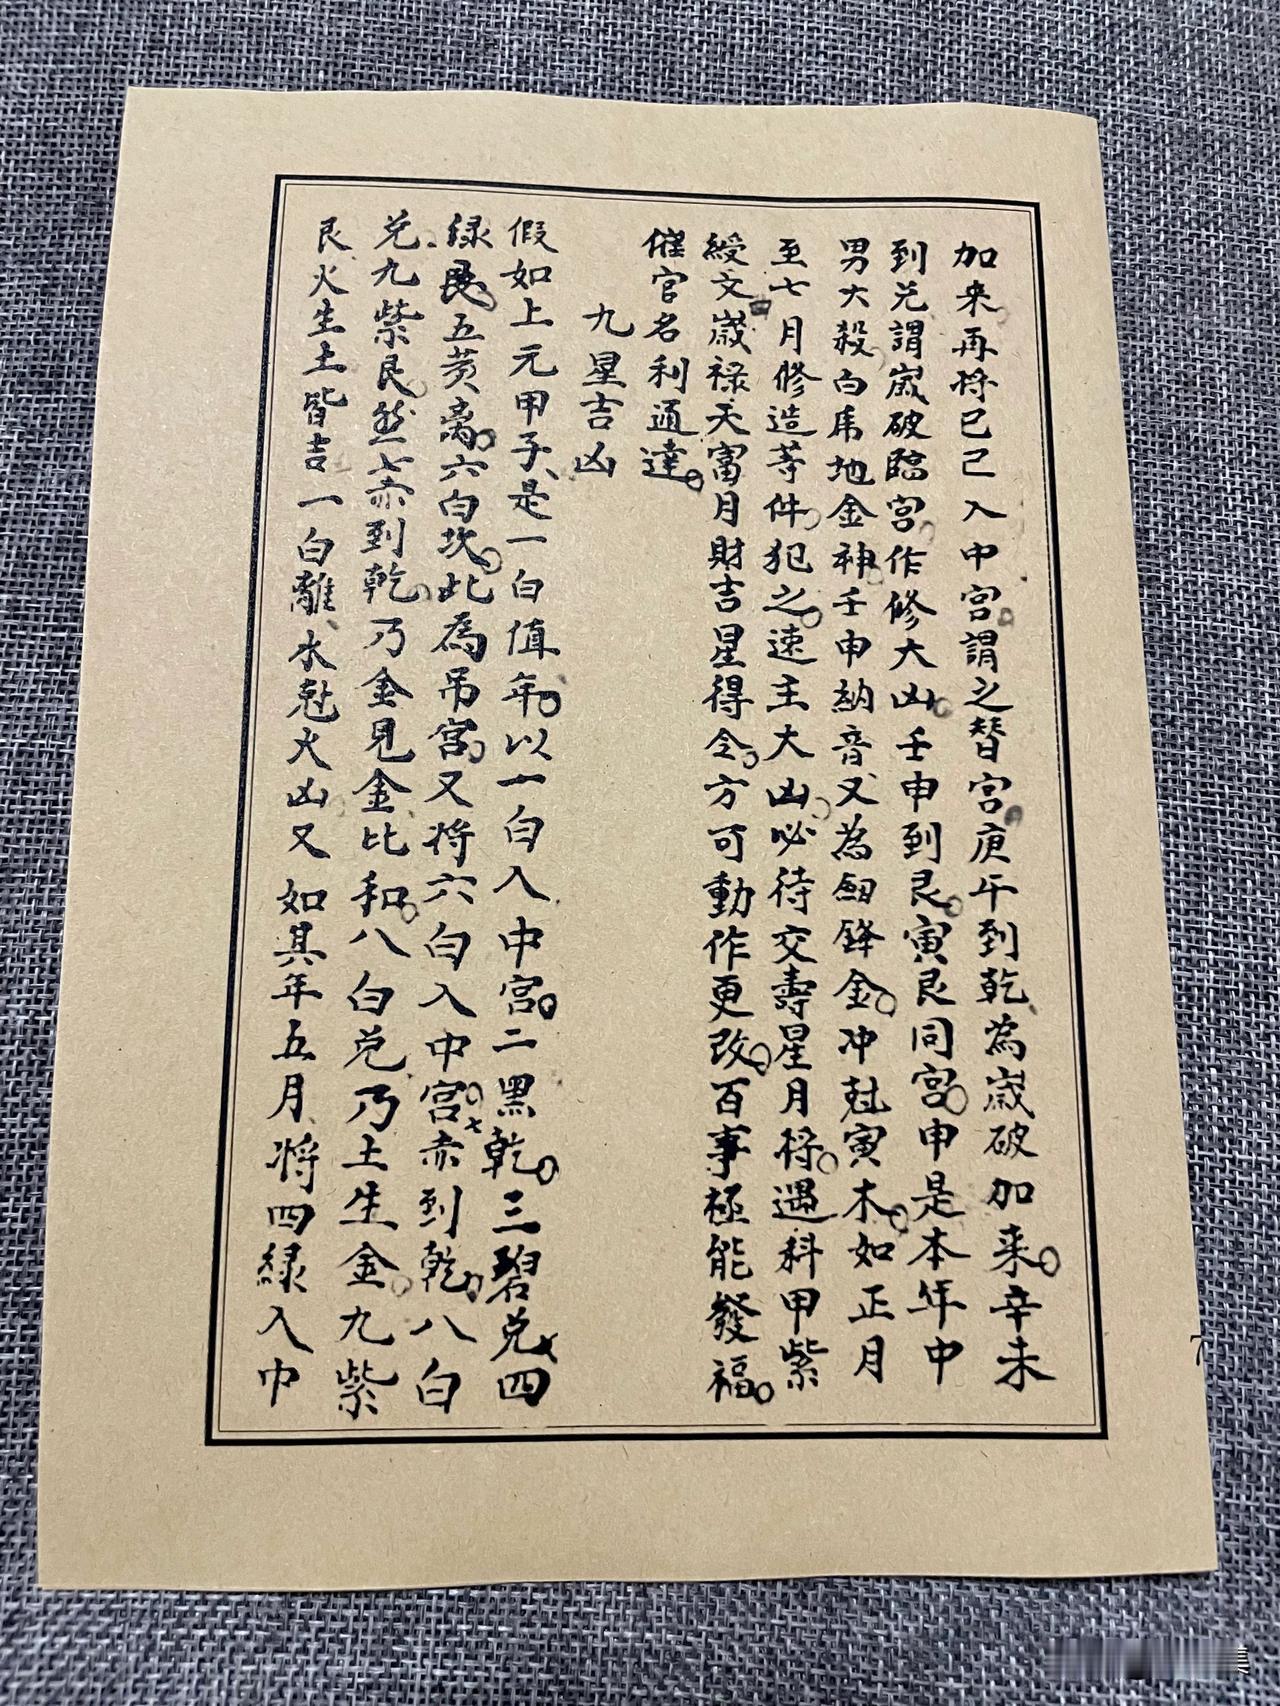 加来再将己巳入中宫謂之替宫庚午到乾為嵗破加来辛未
到兑謂嵗破臨宫作修大凶壬申到艮寅艮同宫申是本年中
男大殺白虎地金神壬申納音又為劔鋒金冲尅寅木如正月
至七月修造等件犯之速主大凶必待交壽星月将遇科甲紫
綬文嵗禄天富月財吉星得令方可動作更改百事極能發福
催官名利通達
九星吉凶
假如上元甲子是一白值年以一白入中宫二黑乾三碧兑四
緑艮五黄离六白坎此為吊宫又将六白入中宫七赤到乾八白
兑九紫艮然七赤到乾乃金見金比和八白兑乃土生金九紫
艮火生土皆吉一白離水尅火凶又如其年五月将四緑入中